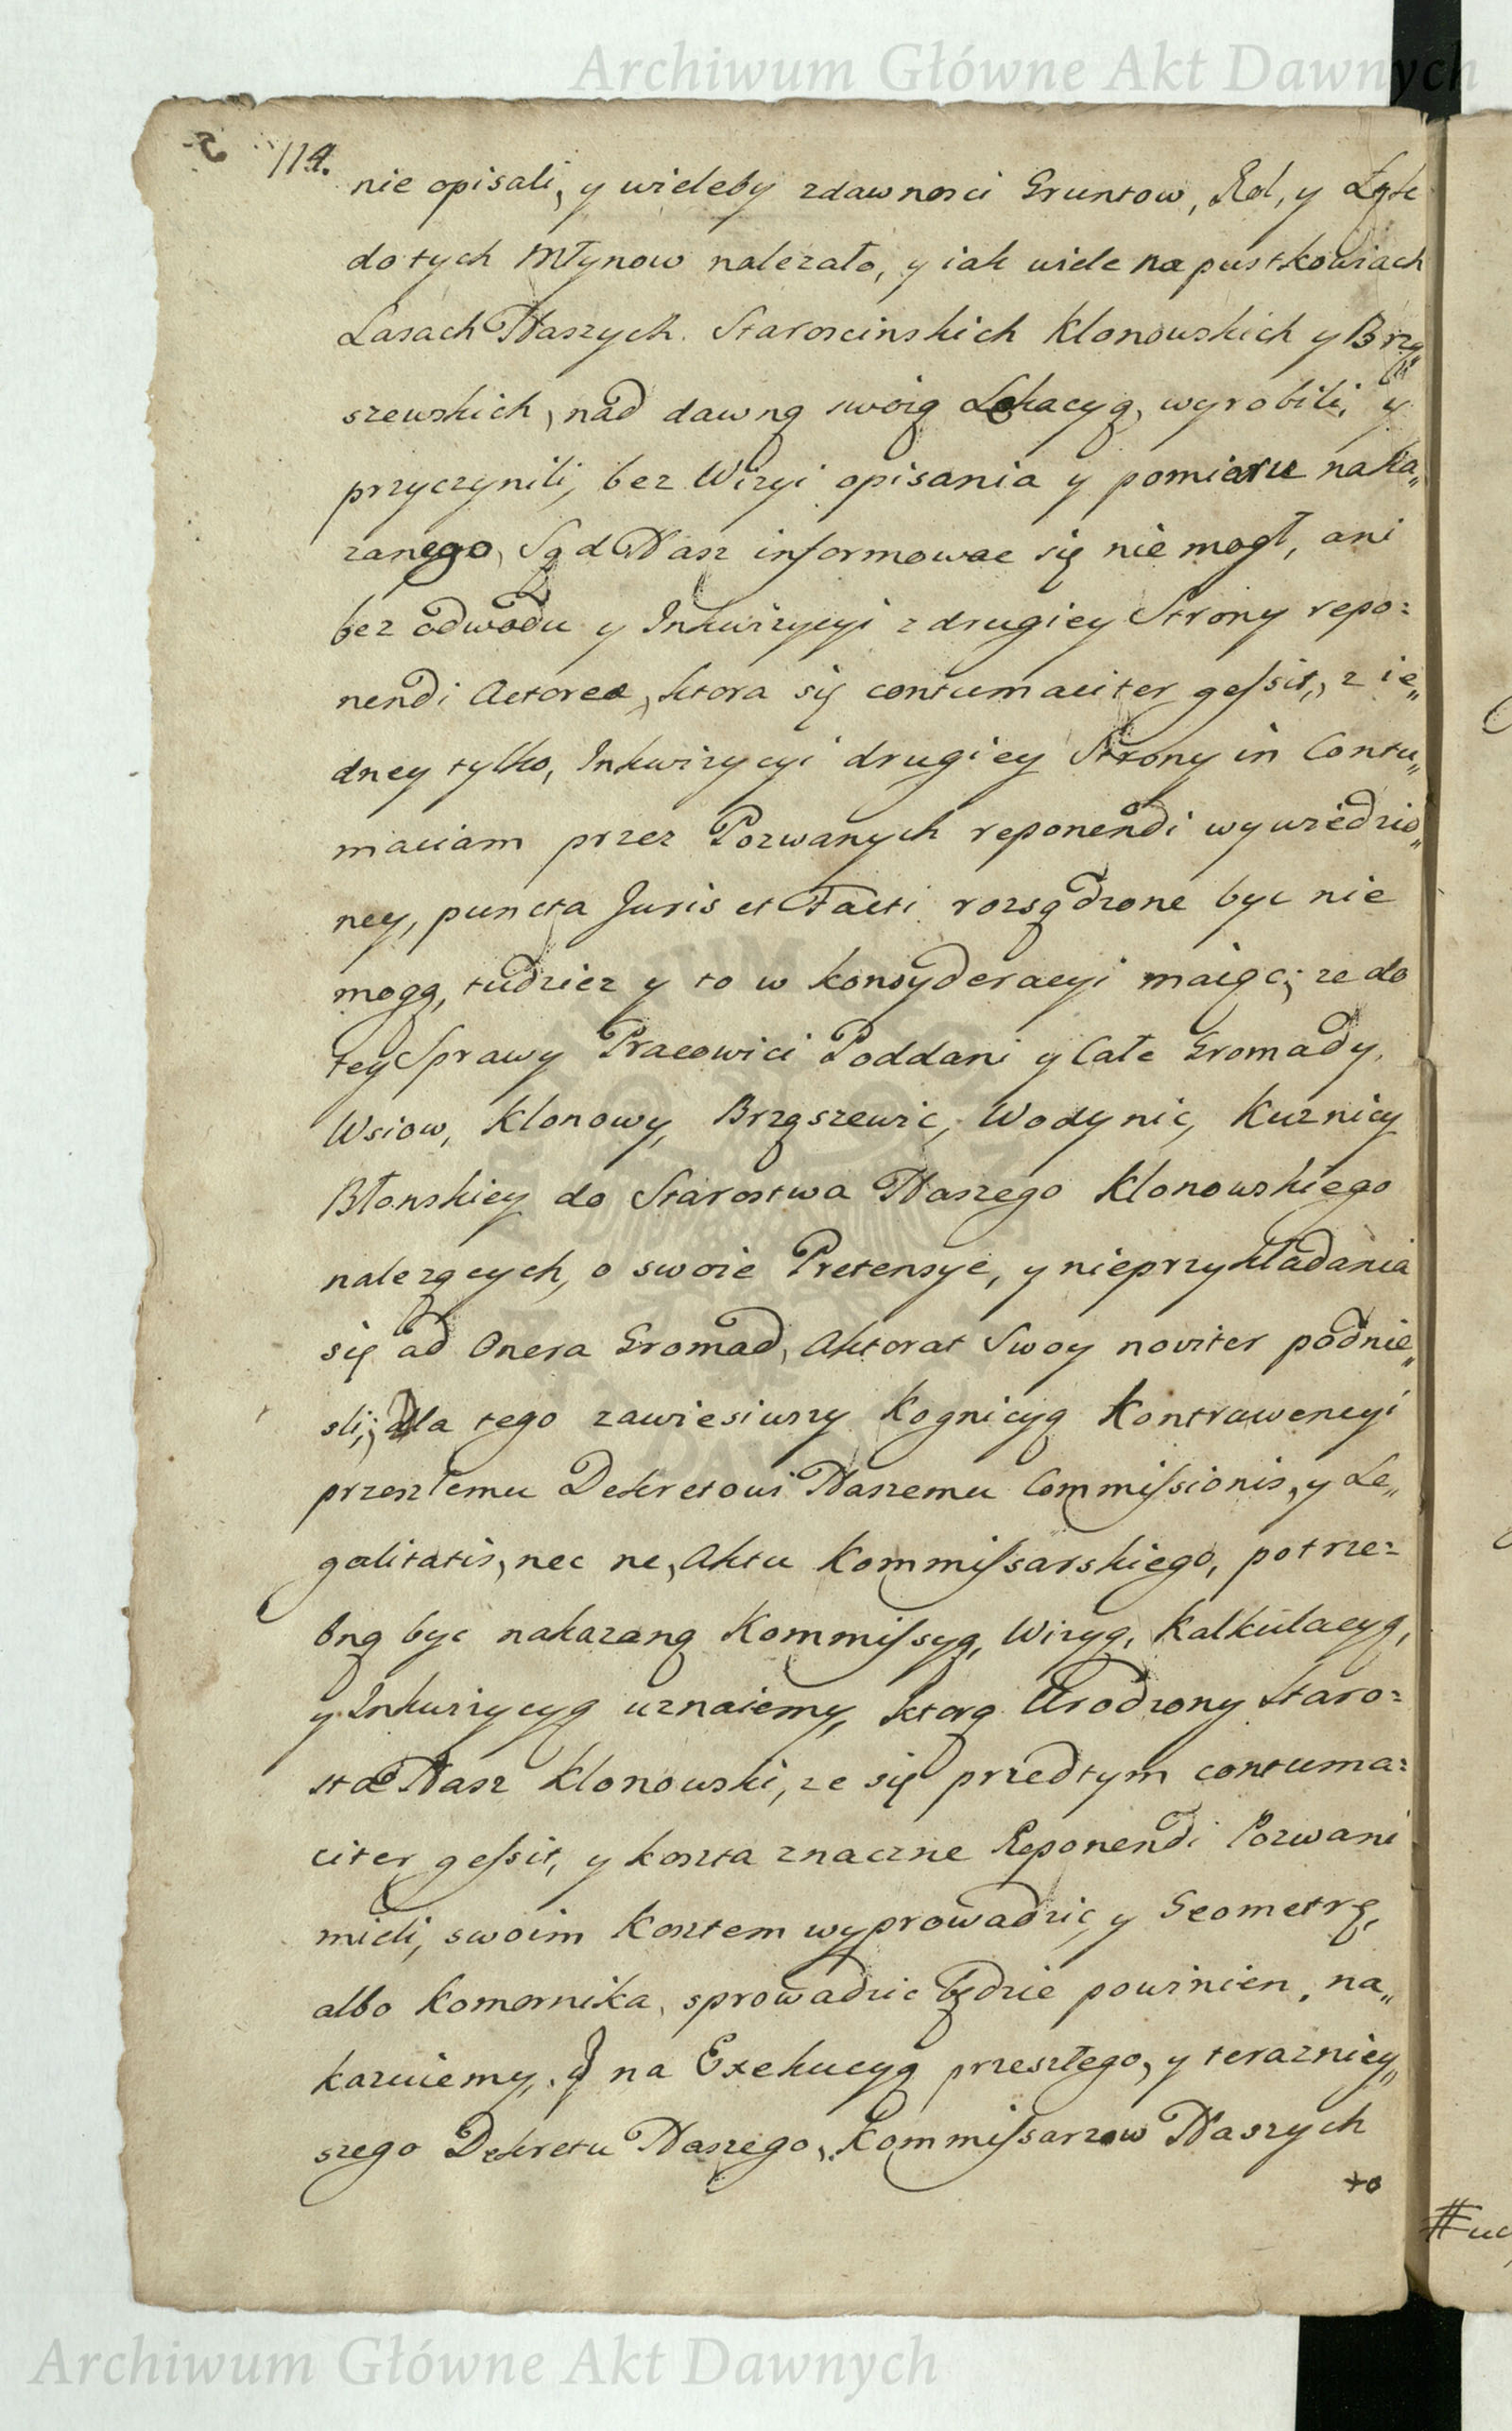 Archiwum Główne Akt Dawnych
114.
nie opisali, y wieleby zdawnosci Gruntow, Rol, y Łąk
do tych Młynow nalezało, y iak wiele na pustkowiach
Lasach Naszych Staroscinskich Klonowskich y Brzą„
szewskich, nad dawną swoią Lokacyą, wyrobili, y
przyczynili, bez Wizyi opisania y pomiaru naka„
zanego, Sąd Nasz informowac się nie mogł, ani
bez odwodu y Inkwizycyi z drugiey Strony repo=
nendi Actorea, ktora się contumaciter gessit, z ie„
dney tylko, Inkwizycyi drugiey Strony in Contu„
maciam przez Pozwanych reponendi wywiedzio„
ney, puncta Juris et Facti rozsądzone byc nie
mogą, tudziez y to w konsyderacyi maiąc, ze do
tey Sprawy Pracowici Poddani y Całe Gromady,
Wsiow, Klonowy, Brząszewic, Wodynic, Kuznicy
Błonskiey do Starostwa Naszego Klonowskiego
nalezących, o swoie Pretensye, y nieprzykładania
się ad Onera Gromad, Aktorat Swoy noviter podnie„
sli, dla tego zawiesiwszy Kognicyą Kontrawencyi
przeszłemu Dekretowi Naszemu Commissionis, y Le„
galitatis, nec ne, Aktu Kommissarskiego, potrze=
bną byc nakazaną Kommissyą, Wizyą, Kalkulacyą,
y Inkwizycyą uznaiemy, ktorą Urodzony Staro=
sta Nasz Klonowski, ze się przedtym contuma=
citer gessit, y koszta znaczne Reponendi Pozwani
mieli, swoim Kosztem wyprowadzic, y Geometrę,
albo Komornika, sprowadzic będzie powinien, na„
kazuiemy. Y na Exekucyą przeszłego, y terazniey„
szego Dekretu Naszego, Kommissarzow Naszych
to
Archiwum Główne Akt Dawnych